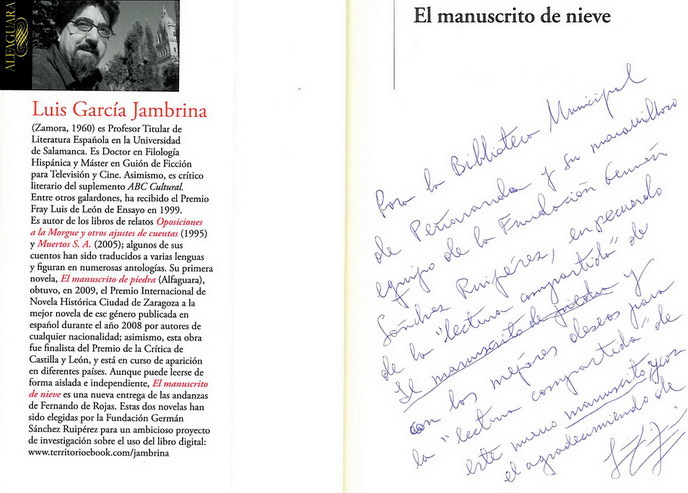 ALFAGUARA
Luis García Jambrina
(Zamora, 1960) es Profesor Titular de
Literatura Española en la Universidad
de Salamanca. Es Doctor en Filología
Hispánica y Máster en Guión de Ficción
para Televisión y Cine. Asimismo, es crítico
literario del suplemento ABC Cultural.
Entre otros galardones, ha recibido el Premio
Fray Luis de León de Ensayo en 1999.
Es autor de los libros de relatos Oposiciones
a la Morgue y otros ajustes de cuentas (1995)
y Muertos S. A. (2005); algunos de sus
cuentos han sido traducidos a varias lenguas
y figuran en numerosas antologías. Su primera
novela, El manuscrito de piedra (Alfaguara),
obtuvo, en 2009, el Premio Internacional de
Novela Histórica Ciudad de Zaragoza a la
mejor novela de ese género publicada en
español durante el año 2008 por autores de
cualquier nacionalidad; asimismo, esta obra
fue finalista del Premio de la Crítica de
Castilla y León, y está en curso de aparición
en diferentes países. Aunque puede leerse de
forma aislada e independiente, El manuscrito
de nieve es una nueva entrega de las andanzas
de Fernando de Rojas. Estas dos novelas han
sido elegidas por la Fundación Germán
Sánchez Ruipérez para un ambicioso proyecto
de investigación sobre el uso del libro digital:
www.territorioebook.com/jambrina
El manuscrito de nieve
Para la Biblioteca Municipal
de Peñaranda y su maravilloso
equipo de la Fundación Germán
Sánchez Ruipérez, en recuerdo
de la "lectura compartida" de
El manuscrito de piedra y
con los mejores deseos para
la "lectura compartida" de
este nuevo manuscrito, con
el agradecimiento de